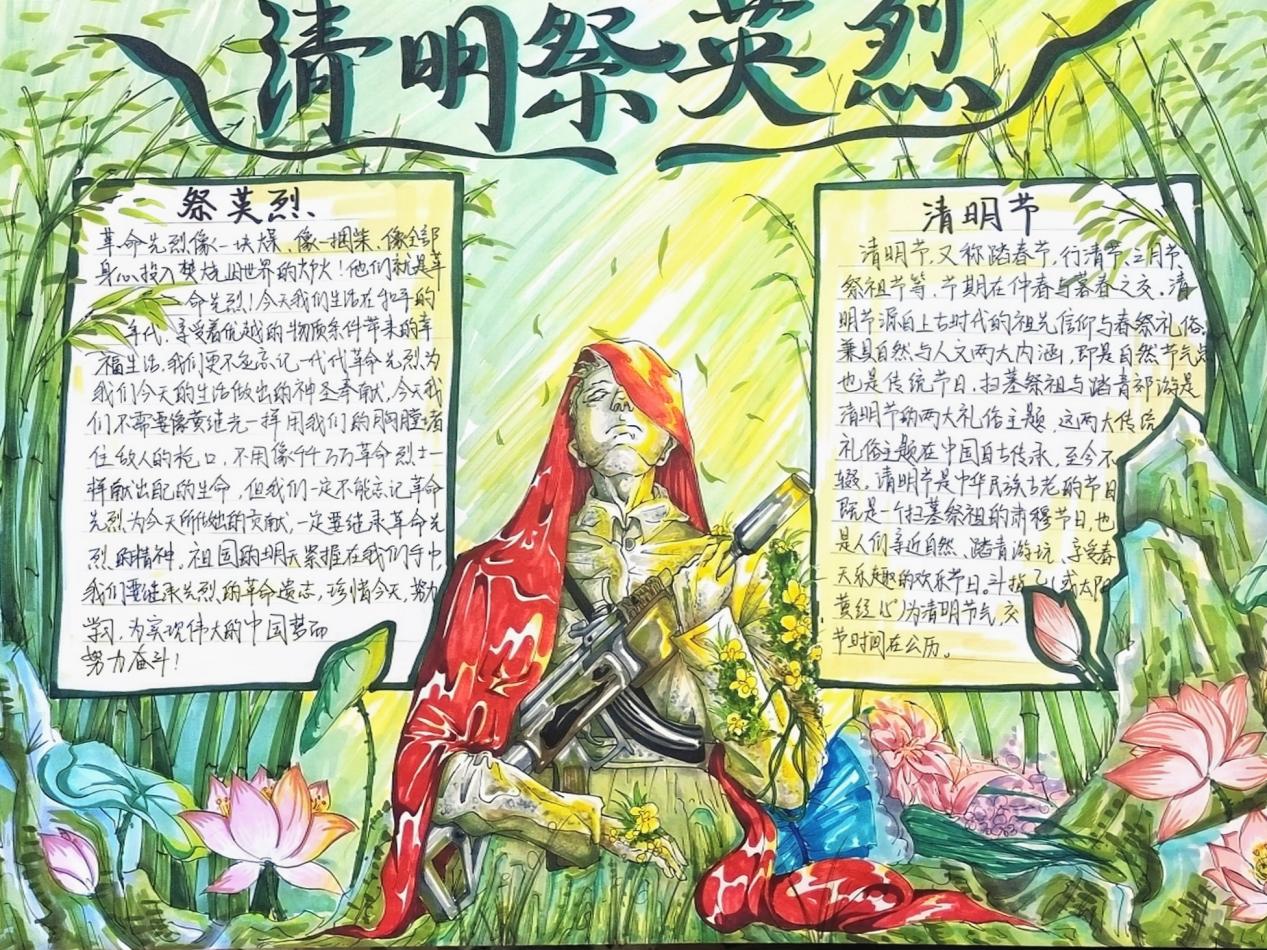 清明祭英烈
祭英烈
革命先烈像一块煤、像一捆柴、像全部
身心投入焚烧旧世界的大火！他们就是革
命先烈！今天我们生活在和平的
年代，享受着优越的物质条件带来的幸
福生活，我们更不忘记一代代革命先烈为
我们今天的生活做出的神圣奉献，今天我
们不需要像黄继光一样用我们的胸膛堵
住敌人的枪口，不用像千千万万革命烈士一
样献出自己的生命，但我们一定不能忘记革命
先烈为今天所做出的贡献，一定要继承革命先
烈的精神，祖国的明天紧握在我们手中，
我们要继承先烈的革命遗志，珍惜今天，努力
学习，为实现伟大的中国梦而
努力奋斗！
清明节
清明节，又称踏春节，行清节、三月节、
祭祖节等，节期在仲春与暮春之交。清
明节源自上古时代的祖先信仰与春祭礼俗，
兼具自然与人文两大内涵，即是自然节气
也是传统节日，扫墓祭祖与踏青郊游是
清明节的两大礼俗主题，这两大传统
礼俗主题在中国自古传承，至今不
辍。清明节是中华民族古老的节日
既是一个扫墓祭祖的肃穆节日，也
是人们亲近自然、踏青游玩、享受春
天乐趣的欢乐节日。斗指乙（或太阳
黄经）为清明节气，交
节时间在公历。